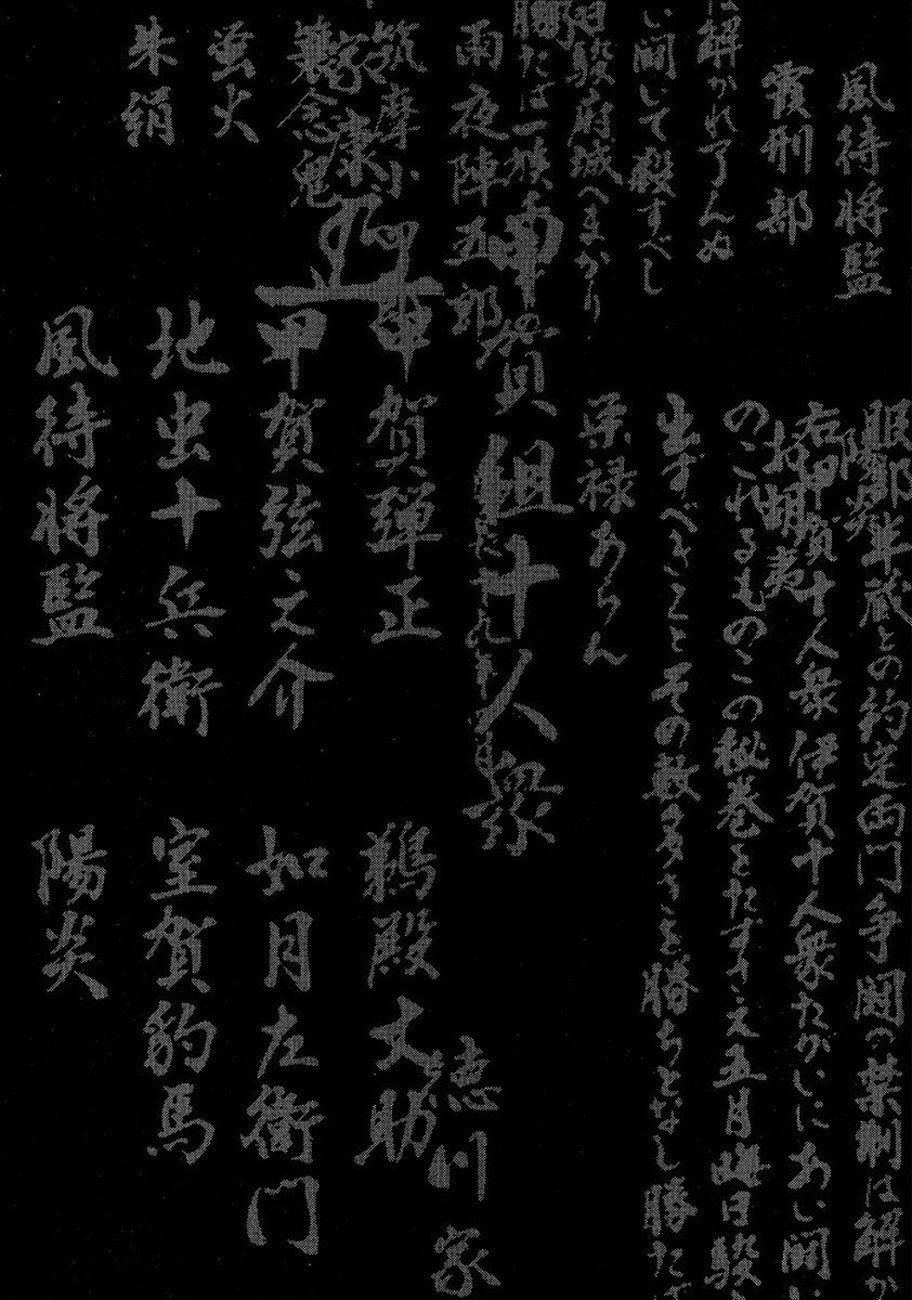 風待将監
霞刑部
は解かれ了んぬ
い闘いて殺すべし
日駿府城へまかり
勝たは一族
雨夜陣五郎
筑摩小四
簑念鬼
家康
蛍火
朱絹
服部半蔵との約定両門争闘の禁制は解か
陽炎
右甲賀十人衆伊賀十人衆たがいにあい闘い
お胡夷
のこれるものこの秘巻をたずさえ五月晦日駿
生すべきことその数多きを勝ちとなし勝たば
栄禄あらん
甲賀組十人衆
徳川家
甲賀弾正
鵜殿丈助
甲賀弦之介
如月左衛門
地虫十兵衛
室賀豹馬
風待将監
陽炎